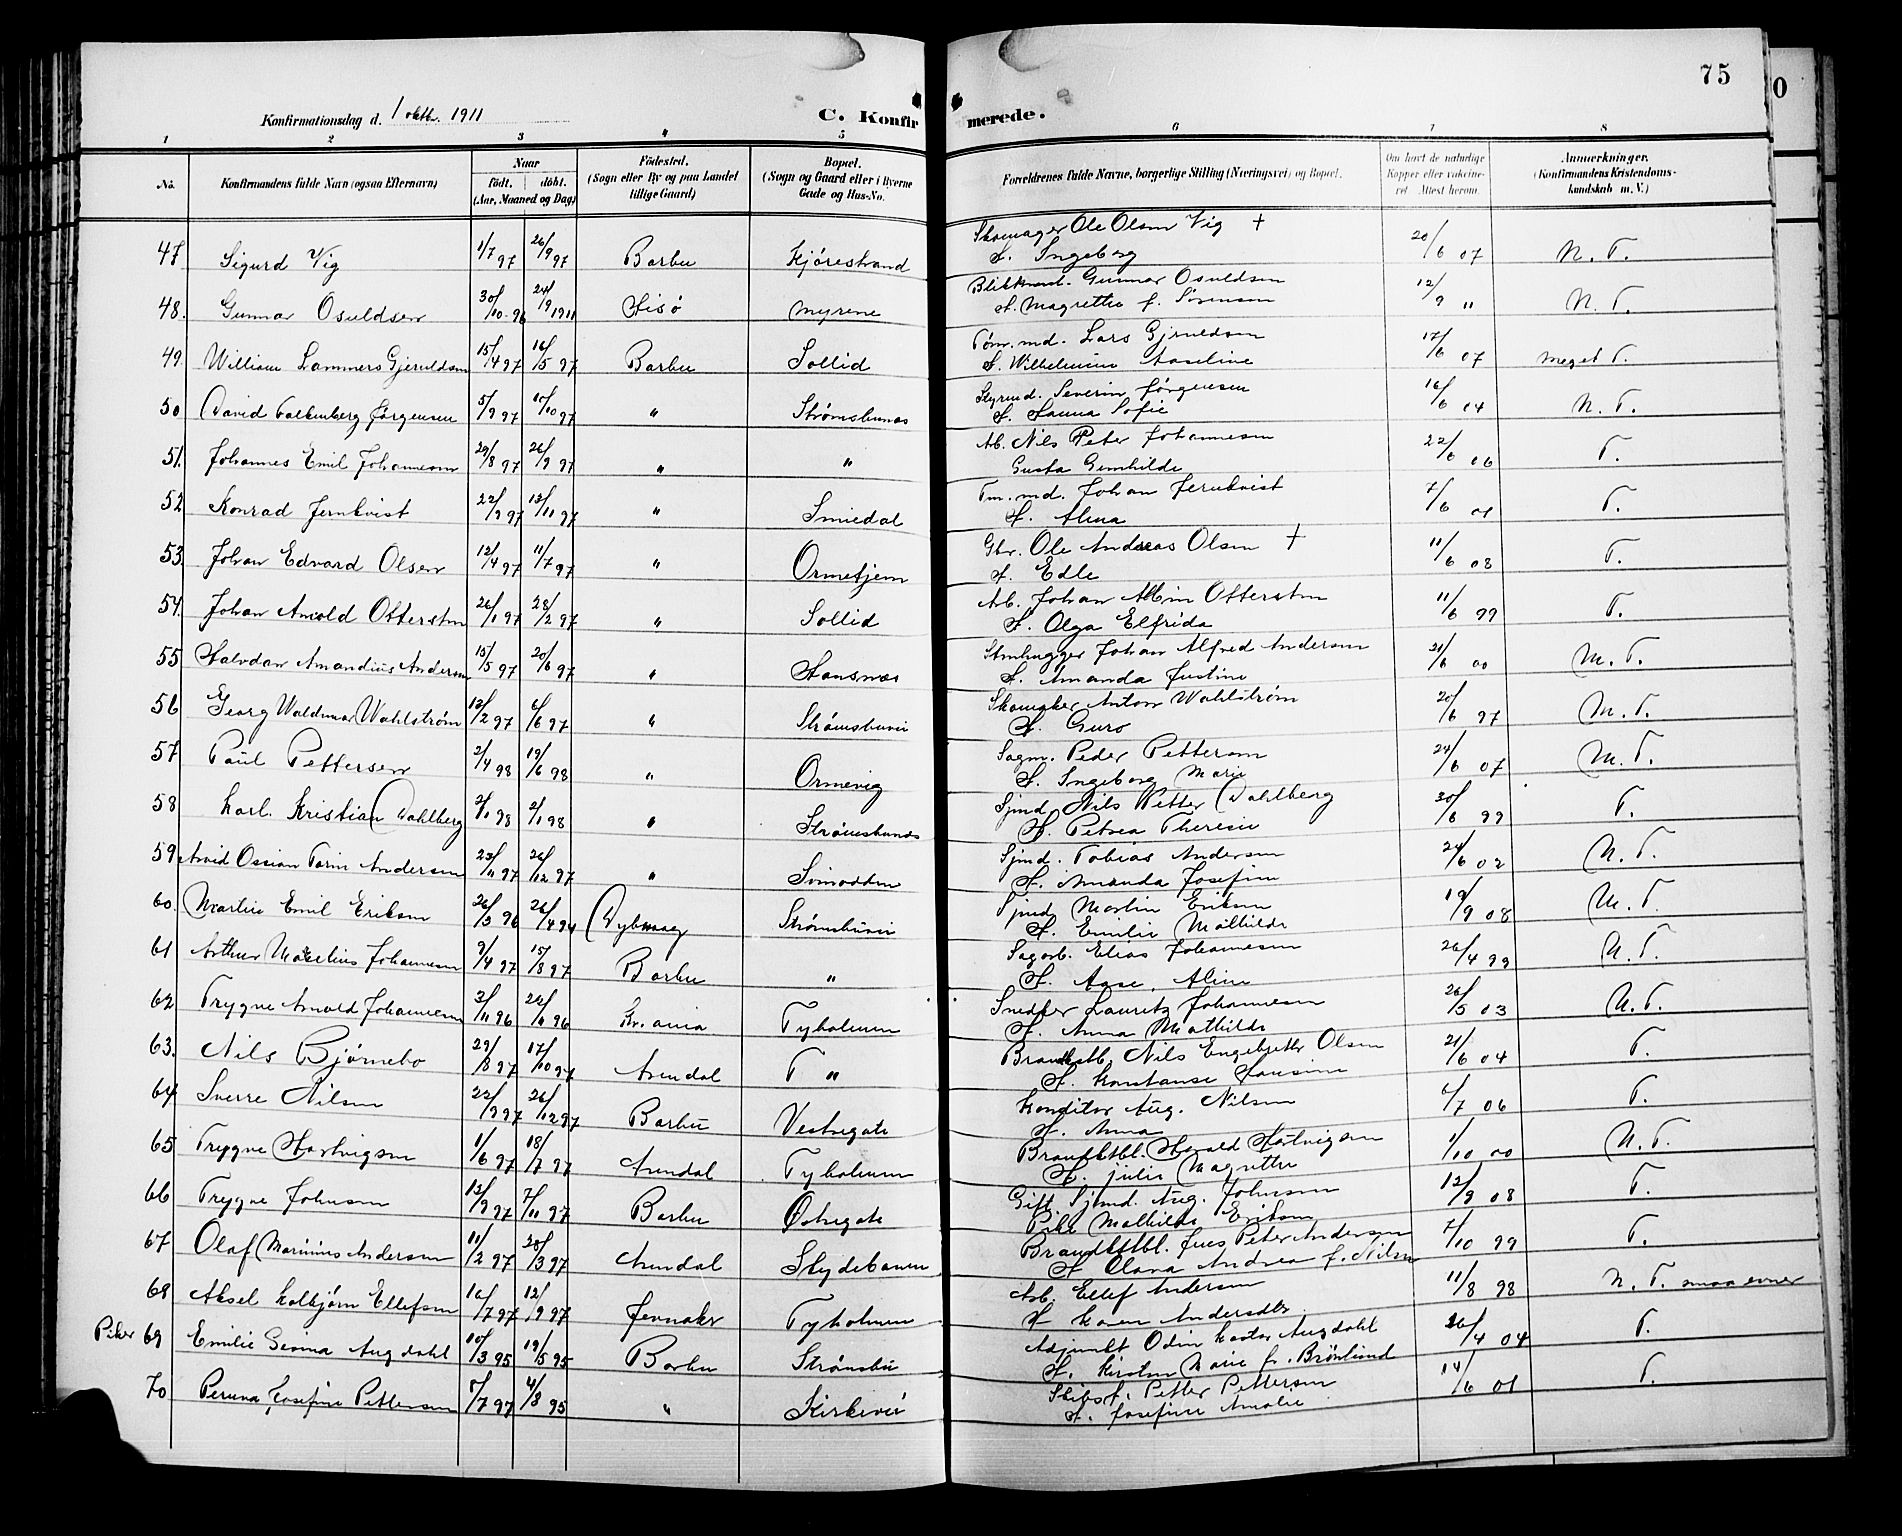 75
0
Konfirmationsdag d. 1 oktbr. 1911
C. Konfirmerede.
1 2 3 4 5 6 7 8
No. Konfirmandens fulde Navn (ogsaa Efternavn) Naar født. døbt. (Aar, Maaned og Dag) Fødested. (Sogn eller By og paa Landet tillige Gaard) Bopæl. (Sogn og Gaard eller i Byerne Gade og Hus-No. Forældrenes fulde Navne, borgerlige Stilling (Næringsvei) og Bopæl. Om havt de naturlige Kopper eller vaccineret Attest herom. Anmærkninger. (Konfirmandens Kristendomskundskab m. V.)
47 Sigurd Vig 1/7 97 26/9 97 Barbu Kjørestrand Skomager Ole Olsen Vig + H. Ingeborg 20/6 07 N. T.
48. Gunnar Osuldsen 30/10 96 24/9 1911 Hisø Myrene Gunnar Osuldsen H. Magrethe f. Sørensen 12/9 " N. T.
49 William Lammers Gjeruldsen 15/4 97 16/5 97 Barbu Sollid Tøm. md. Lars Gjeruldsen H. Wilhelmine Aaseline 17/6 07 meget T.
50 David Falkenberg Jørgensen 5/9 97 10/10 97 " Strømsbunes Severin Jørgensen H. Hanna Sofie 16/6 04 N. T.
51. Johannes Emil Johannesen 29/8 97 26/9 97 " " Ab. Nils Peter Johannesen Gusta Gunhilde 22/6 06 T.
52 Konrad Jernkvist 22/9 97 13/11 97 " Smiedal Tm. md. Johan Jernkvist H. Alma 7/6 01 T.
53. Johan Edvard Olsen 12/4 97 11/7 97 " Ormetjern Gbr. Ole Andreas Olsen + H. Edle 11/6 08 T.
54. Johan Arnold Ottersen 26/1 97 28/2 97 " Sollid Arb. Johan Albin Ottersen H. Olga Elfrida 11/6 99 T.
55 Halvdan Amandius Andersen 15/5 97 20/6 97 " Hansnæs Stenhugger Johan Alfred Andersen H. Amanda Justine 21/6 00 M. T.
56 Georg Waldemar Wahlstrøm 13/2 97 6/6 97 " Strømsbuvei Skomaker Anton Wahlstrøm H. Guro 20/6 97 M. T.
57 Paul Pettersen 2/4 98 19/6 98 " Ormevig Sagm. Peder Pettersen H. Ingeborg Marie 24/6 07 M. T.
58 Karl Kristian Dahlberg 2/1 98 2/1 98 " Strømsbunes Sjmd. Nils Petter Dahlberg H. Petrea Theresie 30/6 99 T.
59 Arvid Ossian Torin Andersen 23/11 97 26/12 97 " Svinodden Sjmd. Tobias Andersen H. Amanda Josefine 24/6 02 N. T.
60. Martin Emil Eriksen 26/3 96 26/4 94 Dybvaag Strømsbuvei Sjmd. Martin Eriksen H. Emilie Mathilde 19/9 08 M. T.
61 Arthur Marelius Johannesen 9/4 97 15/8 97 Barbu " Sagarb. Elias Johannesen H. Aase Aline 26/4 99 N. T.
62 Trygve Arnold Johannesen 3/11 96 Kr.ania Tyholmen Snedker Lauritz Johannesen H. Anna Mathilde 26/5 03 N. T.
63. Nils Bjørnebo 29/8 97 17/10 97 Arendal T " Nils Engebrethr Olsen H. Konstanse Hansine 21/6 04 T.
64 Sverre Nilsen 22/9 97 26/12 97 Barbu Vestregate Konditor Aug. Nilsen H. Anna 6/7 06 T.
65 Trygve Hartvigsen 1/6 97 18/7 97 Arendal Tyholmen Brandkstbl. Harald Hartvigsen H. Julie Magrethe 1/10 00 N. T.
66 Trygve Johnsen 13/9 97 7/11 97 Barbu Østregate Gift. Sjømd. Aug. Johnsen Pike Mathilde Eriksen 12/9 08 T.
67 Olaf Marinius Andersen 11/2 97 28/3 97 Arendal Skydebanen Brandkstbl. Jens Peter Andersen H Olava Andrea f. Nilsen 7/10 99 T.
68 Aksel Kolbjørn Ellefsen 10/7 97 12/9 97 Jevnaker Tyholmen Arb. Ellef Andersen H Karen Andersdtr 11/8 98 N. T. smaa evner
Piker 69 Emilie Augdahl 10/3 95 19/5 95 Barbu Strømsbu Adjunkt Odin Kastor Augdahl H. Kirsten Marie f. Brønlund 26/4 04 T.
70 Peruna Josefine Pettersen 5/7 97 4/8 95 " Kirkevei Skibsf. Petter Pettersen H. Josefine Amalie 14/6 01 T.